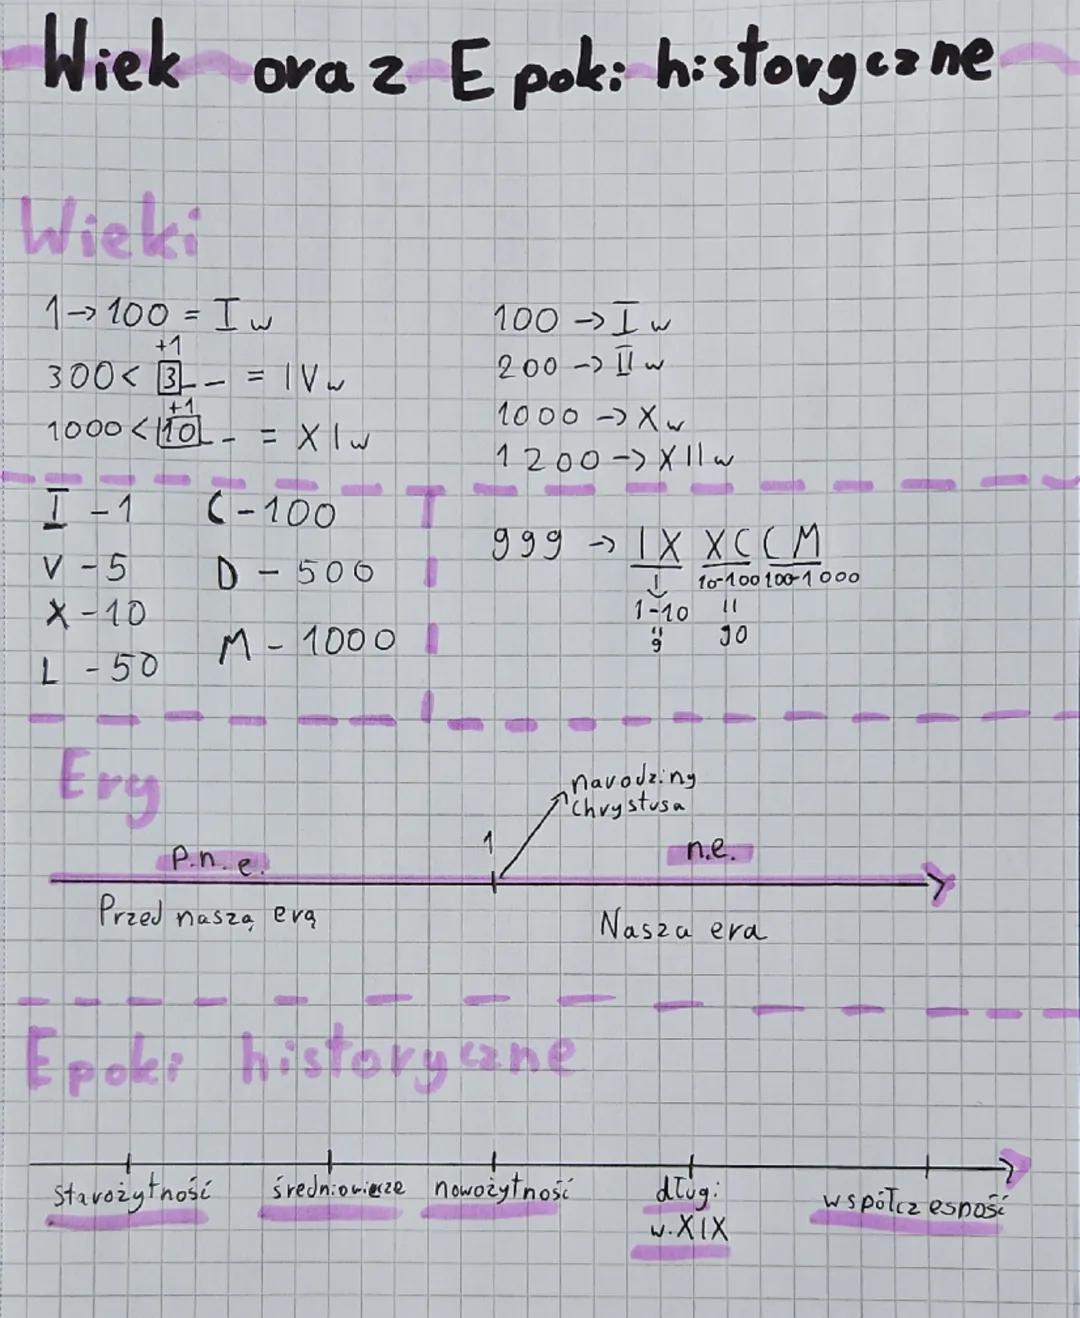 Wiek oraz Epoki historyczne
Wieki
1→100 = I w
+1
300 < 3 _ _ = IV w
+1
1000 < 10 _ _ = XI w
100 → I w
200 → II w
1000 → X w
1200 → XII w
I - 1
V - 5
X - 10
L - 50
C - 100
D - 500
M - 1000
999 → IX XC CM
10-100 100-1000
1-10 11
9 90
Ery
narodziny
Chrystusa
1
p.n.e.
n.e.
Przed naszą erą
Nasza era
Epoki historyczne
Starożytność średniowiecze nowożytność długi współczesność
w. XIX